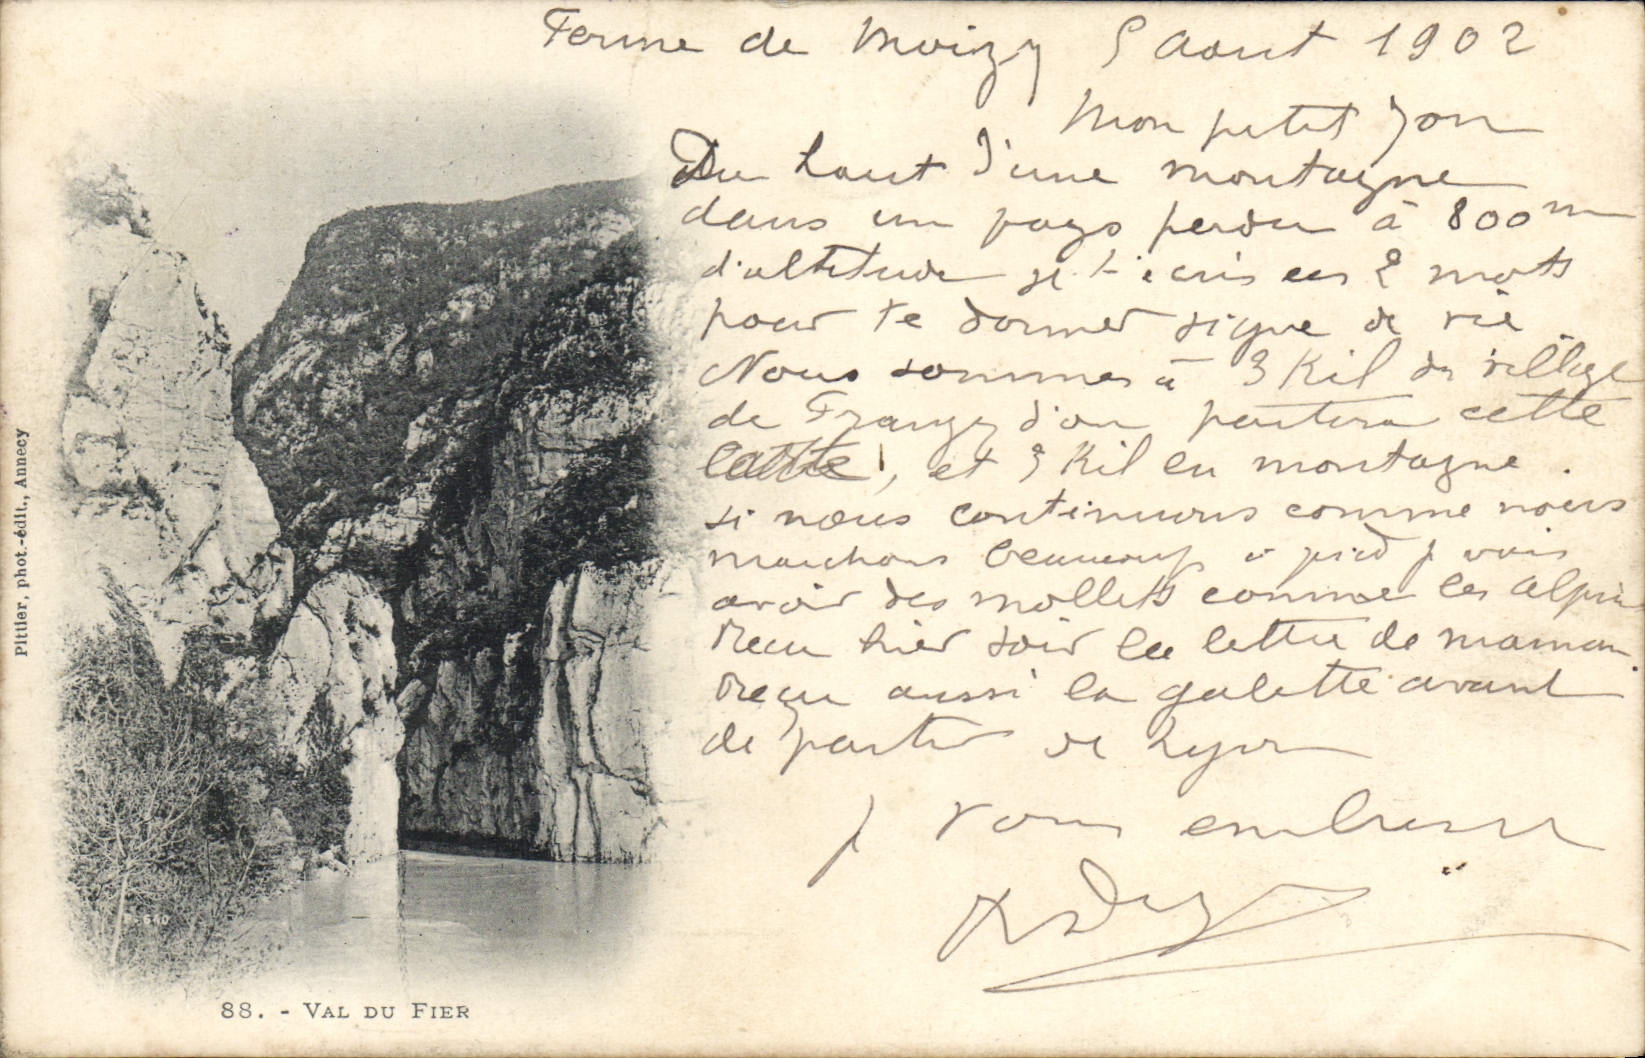 Ferme de Moizy 5 Aout 1902
Mon petit
Du haut d'une montagne
dans un pays perdu à 800m
d'altitude je t'écris ces 2 mots
pour te donner signe de vie
Nous sommes à 3 Kil du village
de Frangy d'où partira cette
carte, et 3 Kil en montagne.
si nous continuons comme nous
marchons beaucoup à pied je vais
avoir des mollets comme les alpins
Reçu hier soir la lettre de maman.
Reçu aussi la galette avant
de partir de Lyon
Je vous embrasse
Pittier, phot.-édit., Annecy
88. - VAL DU FIER